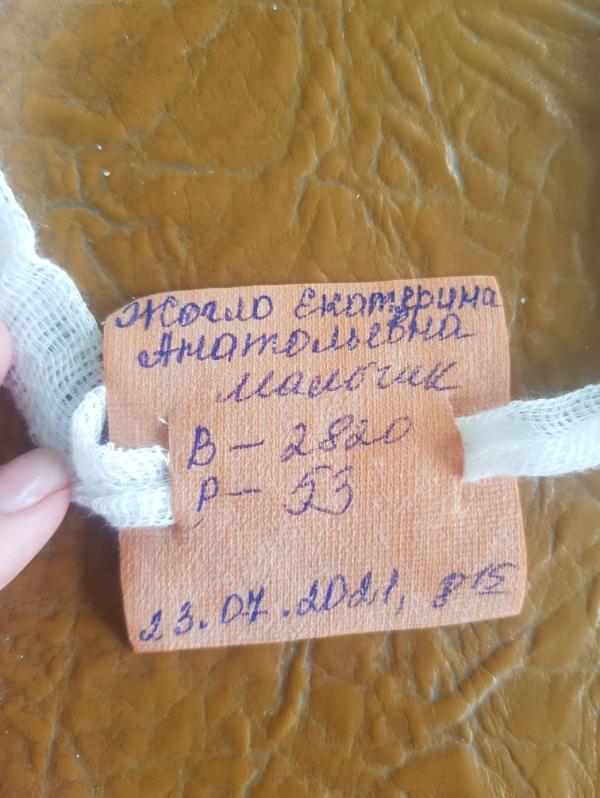 Жогло Екатерина
Анатольевна
мальчик
В – 2820
Р – 53
23.07.2021, 8 15